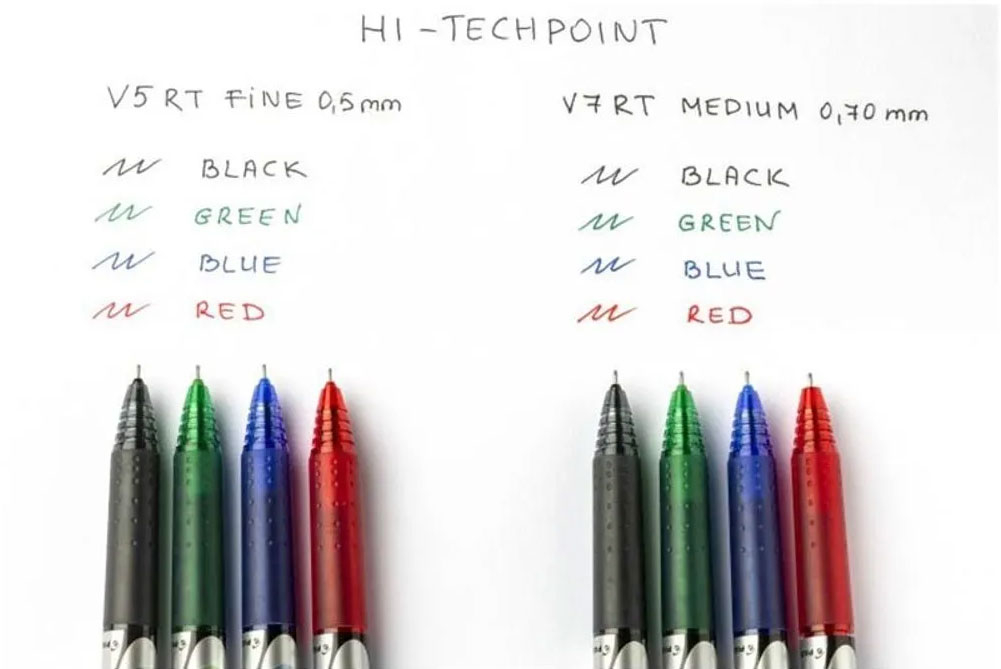 HI-TECHPOINT
V5 RT FINE 0,5mm
BLACK
GREEN
BLUE
RED
V7 RT MEDIUM 0,70 mm
BLACK
GREEN
BLUE
RED